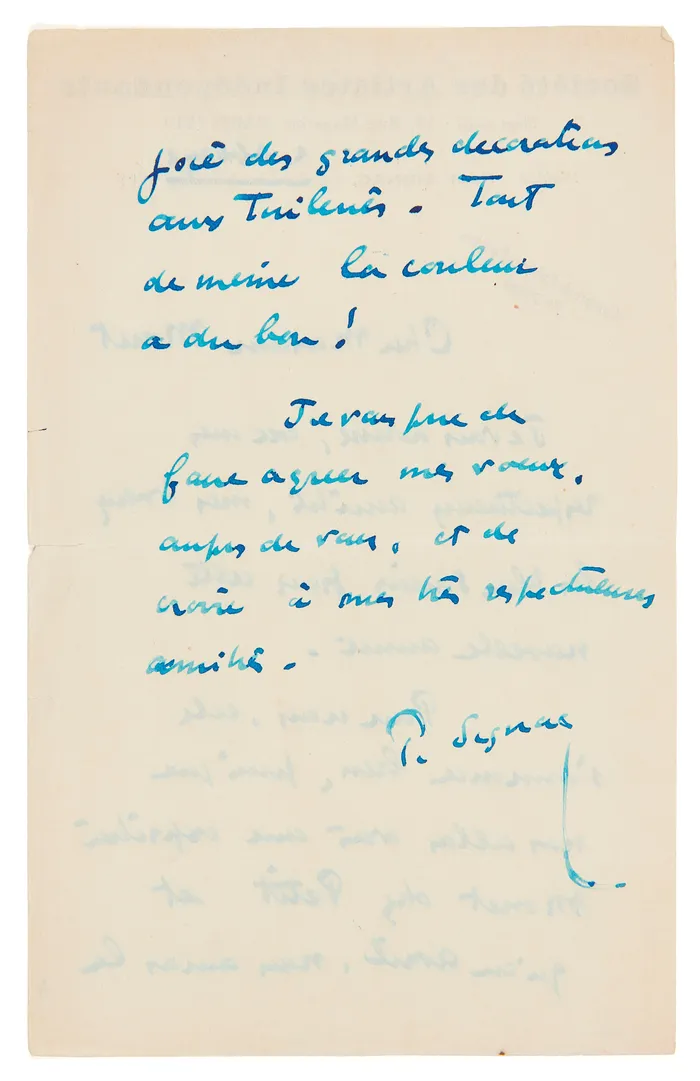 joie des grandes decorations
aux Tuileries. Tout
de meme la couleur
a du bon !
Je vous prie de
faire agreer mes voeux,
auprès de vous, et de
croire à mes très respectueuses
amitiés.
P. Signac